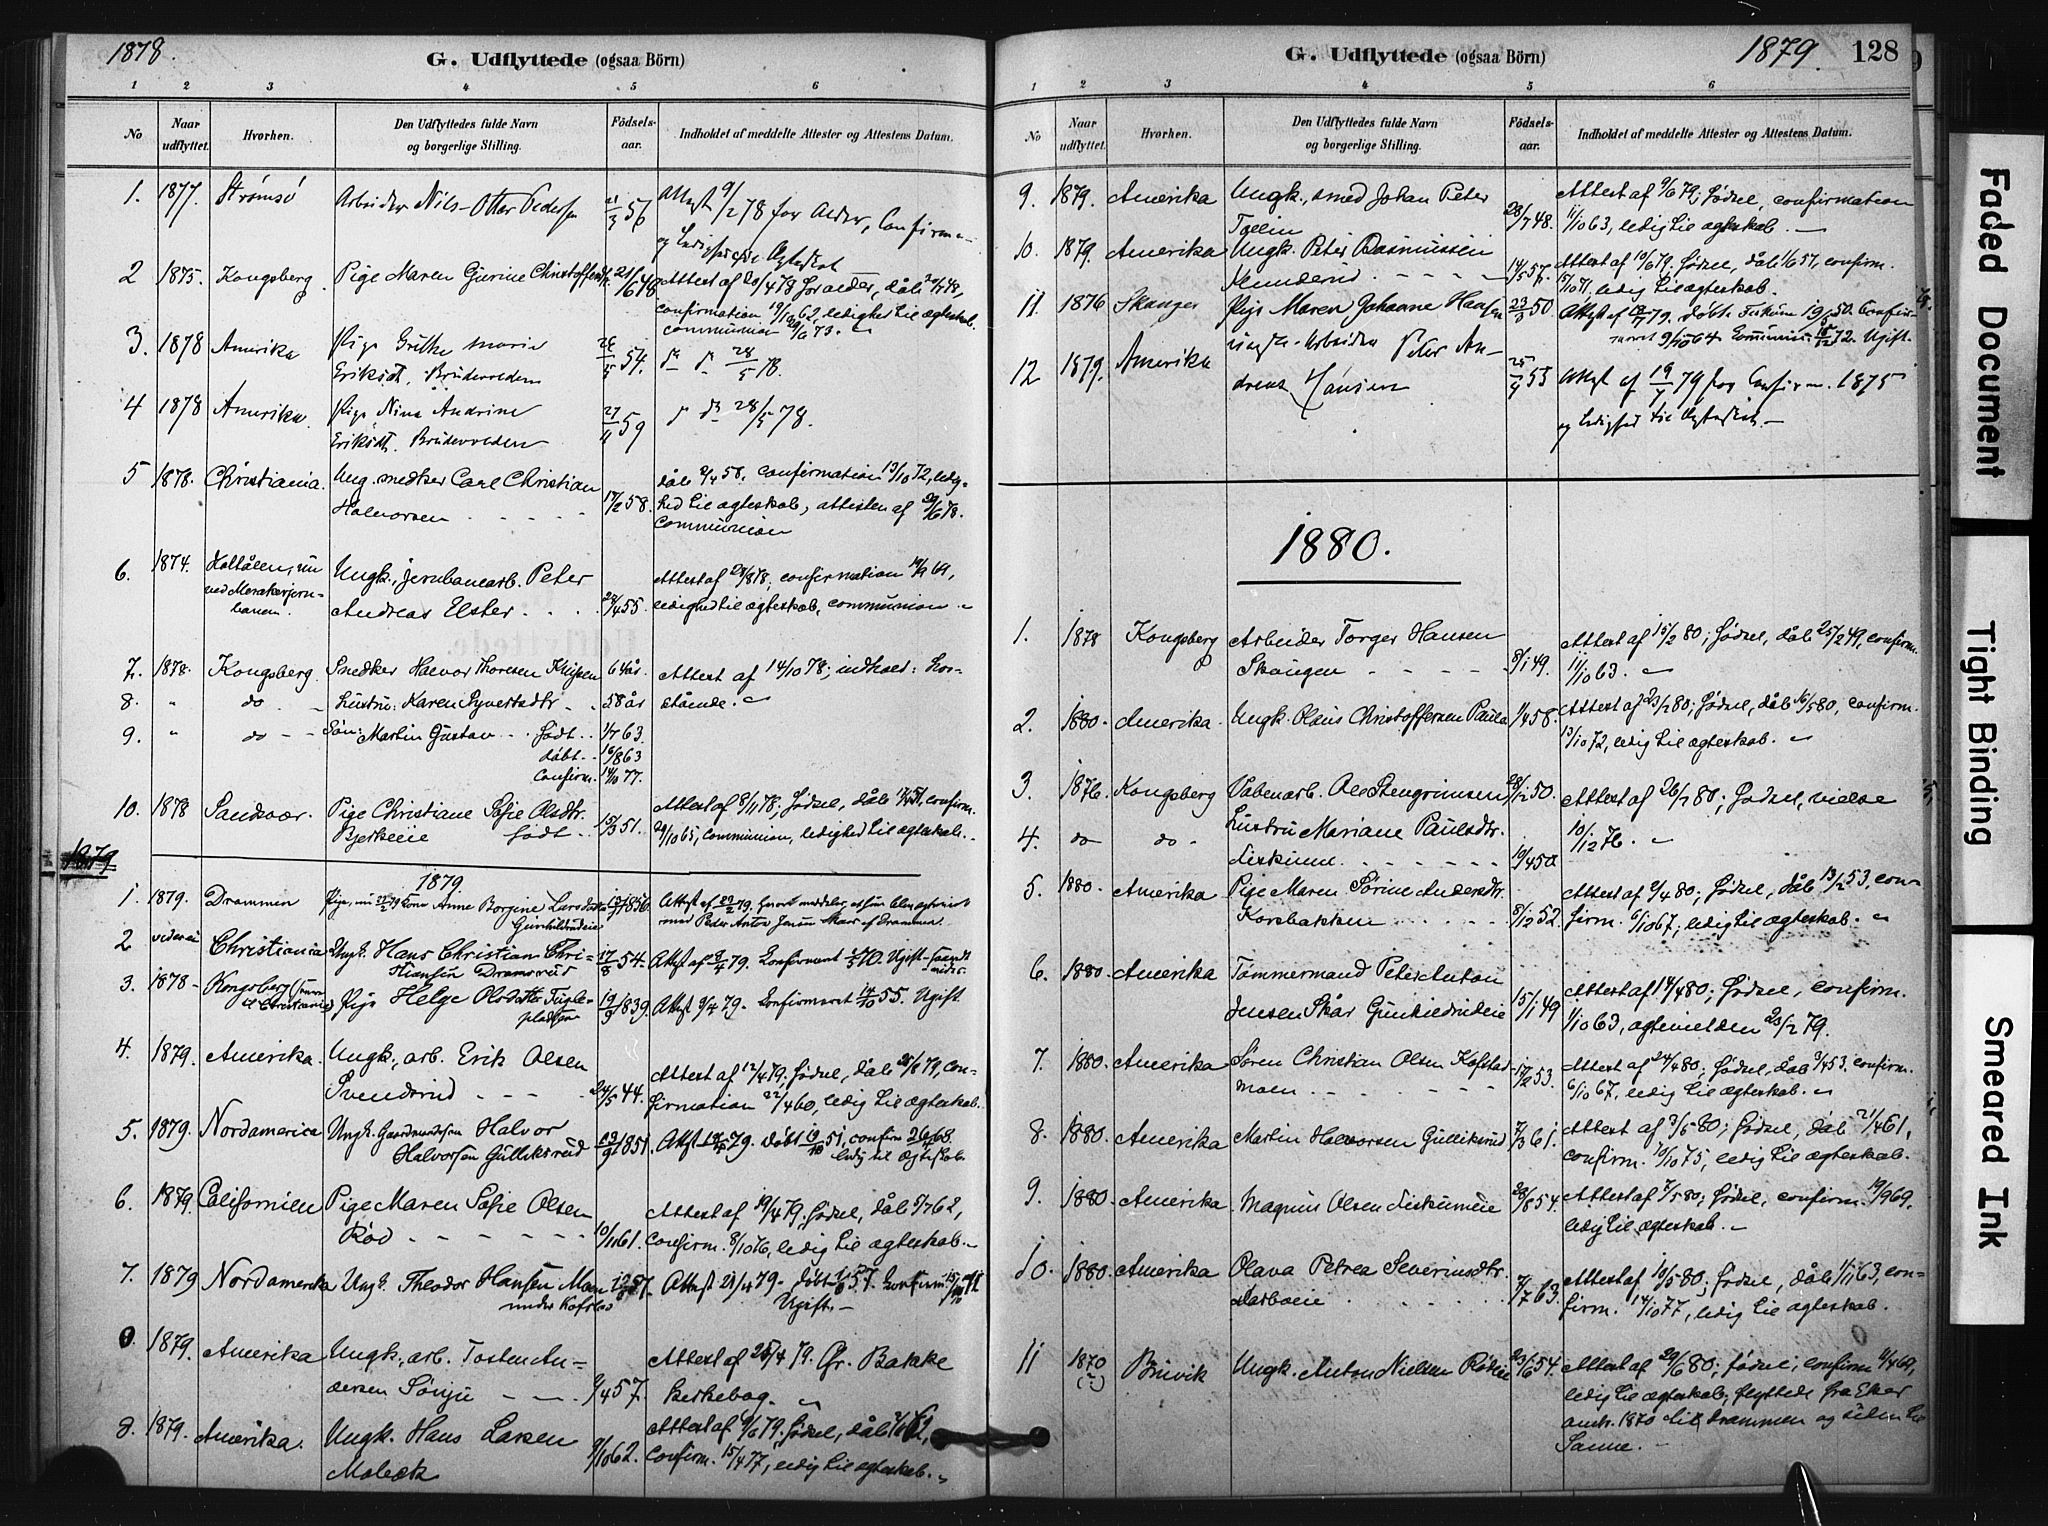 1878.
G. Udflyttede (ogsaa Börn)
1 2 3 4 5 6
No Naar udflyttet. Hvorhen. Den Udflyttedes fulde Navn og borgerlige Stilling. Födsels-aar. Indholdet af meddelte Attester og Attestens Datum.
1. 1877. Strømsø Arbeider Nils Otter Pedersen 21/3 56 Attest 9/2 78 for Alder, Confirma-
og Ledighed for Ægteskab
2 1875. Kongsberg. Pige Maren Gurine Christoffersdtr. 21/6 48 Attest af 20/4 78 for alder, dåb
confirmation 19/10 62, ledighed til ægteskab.
communion 73.
3. 1878 Amerika Pige Grethe Marie
Eriksdt. Brüdevolden 54. 28/5 78.
4 1878 Amerika. Pige Nina Andrine
Eriksdt. Brüdevolden 27/11 59 28/5 78.
5 1878. Christiania. Ung. snedker Carl Christian
Halvorsen 17/2 58. dåb 2/4 58, confirmation 13/10 72, ledig-
hed til ægteskab, attesten af 29/6 78.
communion
6. 1874. Holtålen, nu
ved Merakerjern-
banen. Ungk., jernbanearb. Peter
Andreas Elster 28/4 55. Attest af 28/8 78, confirmation 19/9 69,
ledighed til ægteskab, communion
7. 1878. Kongsberg. Snedker Halvor Thoresen 64 år. Attest af 14/10 78; indhold: hos-
8. " do Hustru: Karen Syvertsdtr 58 år stående.
9. " do Søn: Martin Gustav født 1/7 63.
døbt 16/8 63
Confirm. 14/10 77.
10. 1878 Sandsvær. Pige Christiane Sofie Olsdtr.
Bjerkeeie født 15/3 51. Attest af 8/11 78; fødsel, dåb, confirm.
2/10 65, communion, ledighed til ægteskab.
1879
1879.
1. 1879. Drammen Pige, nu Kone Anne Borgine Larsdatter
1856. Attest af 22/2 79.
med Peter Anton Jensen Skar af Drammen.
2 Christiania Ungk. Hans Christian Chri-
stiansen Dramsrud 17/8 54. Attest af 8/4 79. Confirmert 70. Ugift
3. 1878 Kongsberg Pige Helge Olsdatter
19/9 1839. Attest 9/4 79. Confirmeret 14/10 55. Ugift.
4. 1879. Amerika. Ungk., arb. Erik Olsen
Svendsrud 24/5 44. Attest af 12/4 79; fødsel, dåb, con-
firmation 22/4 60, ledig til ægteskab.
5. 1879. Nordamerica Ungk. Gaardmandssøn Halvor
Halvorsen Gulliksrud 1851. Attest 79. Døbt 51, confirm 68.
ledig til Ægteskab.
6. 1879. Californien Pige Maren Sofie Olsen
Rød 10/11 61. Attest af 19/4 79, fødsel, dåb 5/7 62,
confirm. 8/10 76, ledig til ægteskab.
7. 1879 Nordamerika Ungk. Theodor Hansen Moen
under Kofstad 57. Attest 21/4 79. Døbt 57. Confirm. 15/10 71
Ugift.
1879. Amerika Ungk., arb. Tosten An-
dersen Sønju 9/4 57. Attest af 25/4 79. Gr. Bakke
kirkebog.
8. 1879. Amerika. Ungk. Hans Larsen
Molbæk 9/10 62. Attest af 9/6 79. fødsel, dåb
confirm. 15/4 77, ledig til ægteskab.
G. Udflyttede (ogsaa Börn)
1879. 128
1 2 3 4 5 6
No Naar udflyttet. Hvorhen. Den Udflyttedes fulde Navn og borgerlige Stilling. Födsels-aar. Indholdet af meddelte Attester og Attestens Datum.
9. 1879. Amerika Ungk., smed Johan Peter
28/7 48. Attest af 9/6 79; fødsel, confirmation
11/10 63, ledig til ægteskab.
10. 1879. Amerika Ungk. Peter Rasmussen
14/5 57. Attest af 10/6 79; fødsel, dåb 1/6 57, confirm.
15/10 71, ledig til ægteskab.
11. 1876 Skoger Pige Maren Johanne Hansen 23/3 50 Attest af 79. Døbt Fiskum 19/5 50. Confir-
meret 9/10 64. Communic. 72. Ugift.
12 1879. Amerika ungk. Arbeider Peter An-
dreas Hansen 25/4 53 Attest af 19/7 79 for Confirm. 1875
og ledighed til Ægteskab.
1880.
1. 1878 Kongsberg Arbeider Torger Hansen
Skougen 8/1 49. Attest af 15/2 80; fødsel, dåb 25/2 49, confirm.
11/10 63.
2. 1880. Amerika. Ungk. Olaus Christoffersen Paula 1/4 58. Attest af 23/2 80; fødsel, dåb 16/5 80, confirm.
13/10 72, ledig til ægteskab.
3. 1876. Kongsberg Våbenarb. Ole Stengrimsen 28/12 50. Attest af 26/2 80; fødsel, vielse
4. do do Hustru Mariane Paulsdtr.
Fiskum 19/4 50. 10/12 76.
5. 1880. Amerika Pige Maren Sørine Andersdtr.
Korsbakken 8/12 52. Attest af 2/4 80; fødsel, dåb 13/2 53, con-
firm. 6/10 67, ledig til ægteskab.
6. 1880. Amerika Tømmermand Peter Anton
Jensen Skår Gunhildrudeie 15/1 49 Attest af 14/4 80; fødsel, confirm.
1/10 63, ægtevielsen 23/2 79.
7. 1880. Amerika Søren Christian Olsen Kofstad
moen 17/2 53. Attest af 24/4 80; fødsel, dåb 3/4 53, confirm.
6/10 67, ledig til ægteskab.
8. 1880. Amerika Martin Halvorsen Gulliksrud 7/3 61. Attest af 3/5 80; fødsel, dåb 21/4 61,
confirm. 10/10 75, ledig til ægteskab.
9. 1880. Amerika. Magnus Olsen Fiskumeie 28/8 54. Attest af 7/5 80; fødsel, confirm 19/9 69,
ledig til ægteskab.
10. 1880. Amerika Olava Petrea Severinsdtr.
7/7 63. Attest af 10/5 80, fødsel, dåb 1/11 63, con-
firm. 14/10 77, ledig til ægteskab.
11 1870
(?) Brevik Ungk. Anton Nielsen Rødeie 23/6 54. Attest af 29/6 80; fødsel, confirm 11/4 69,
ledig til ægteskab; flyttede fra Eker
1870 til Drammen og siden til
Sanne.
Faded Document
Tight Binding
Smeared Ink